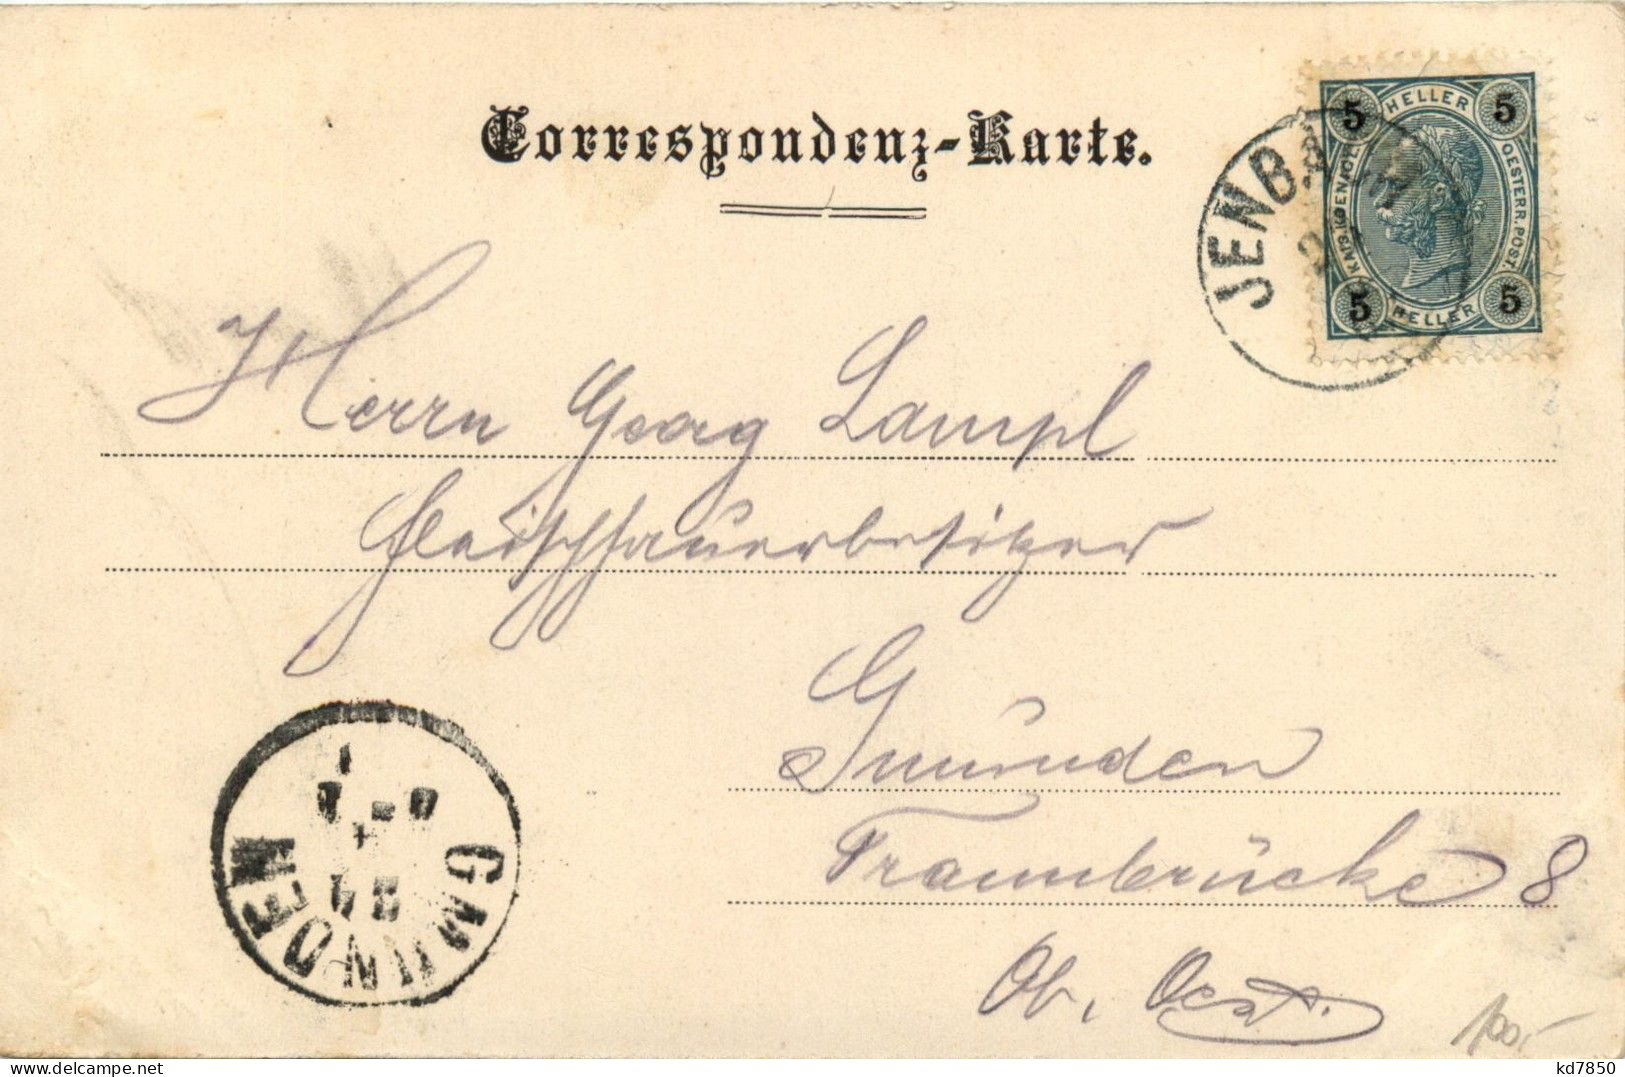 Correspondenz-Karte.
5 HELLER 5
KAIS. KOENIGL. OESTERR. POST.
5 HELLER 5
JENBACH
Herrn Georg Lampl
Fleischhauerbesitzer
Gmunden
Traunbrücke 8
Ob. Oest.
GMUNDEN
100,-
kd7850